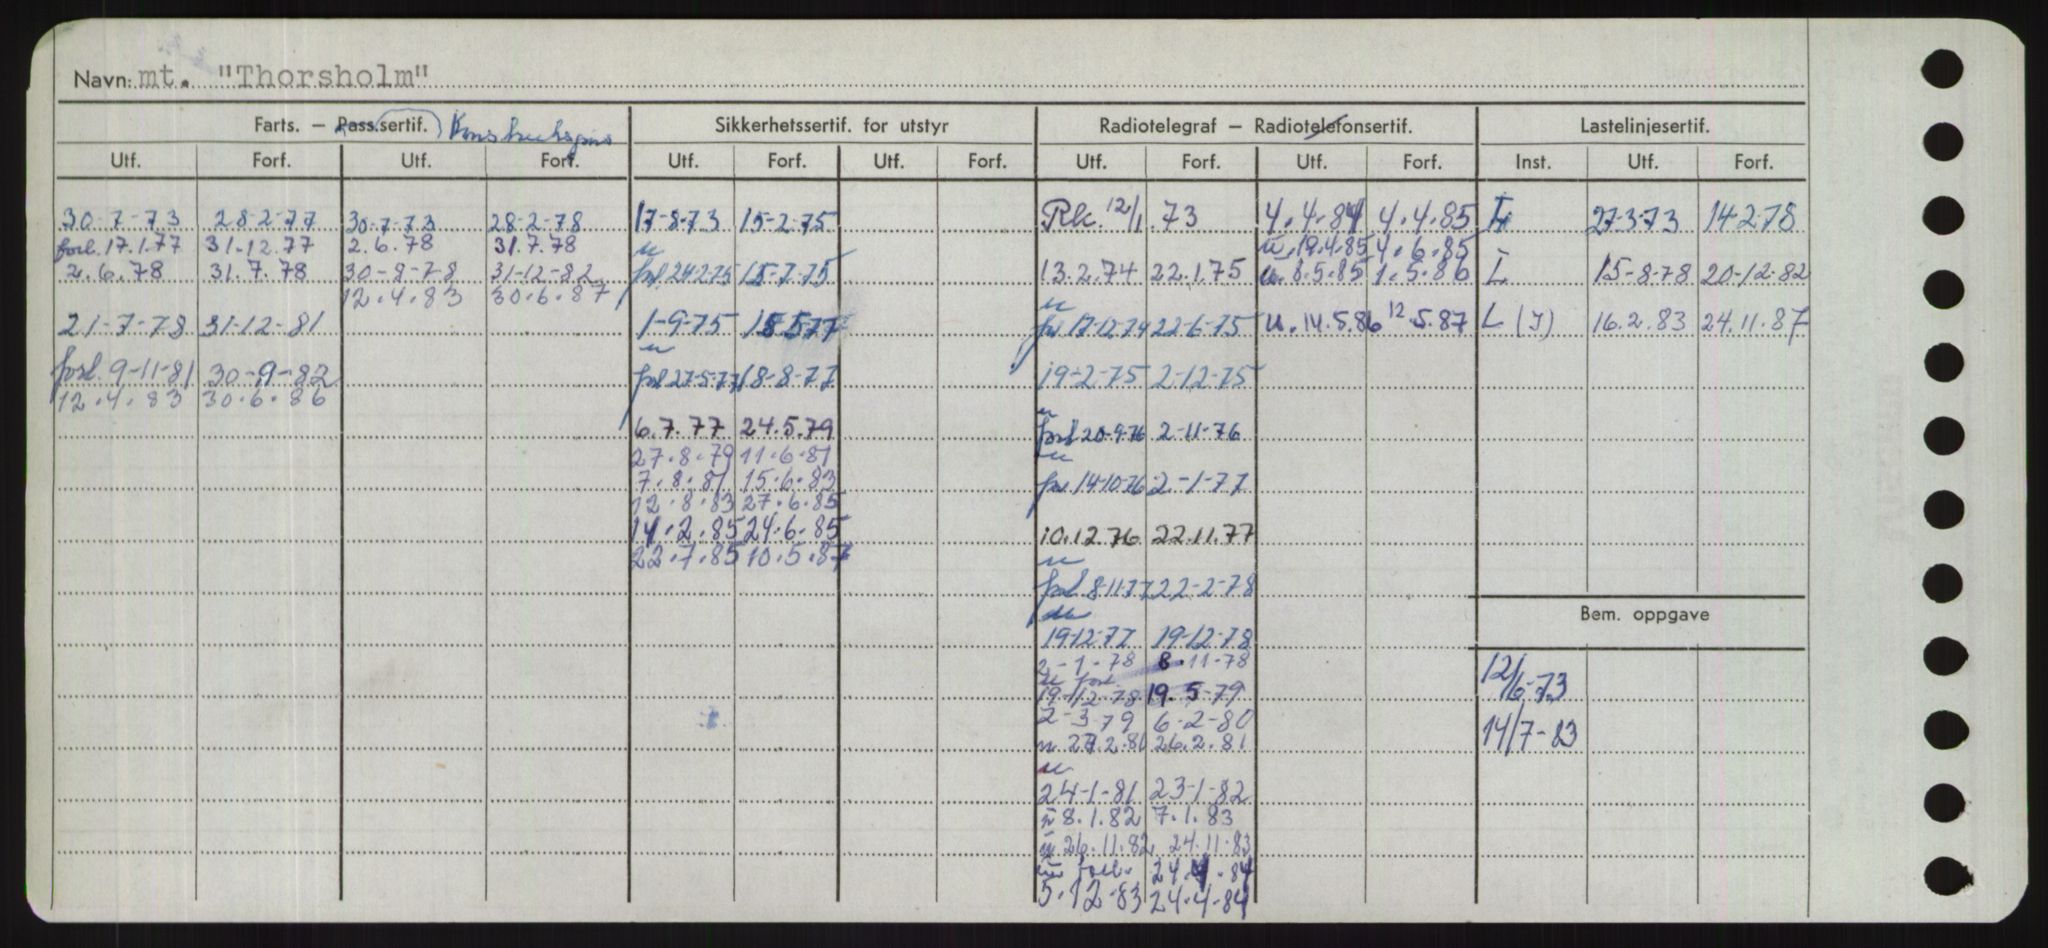 Navn: mt. "Thorsholm"
Farts. – Pass.sertif. Sikkerhetssertif. for utstyr Radiotelegraf – Radiotelefonsertif. Lastelinjesertif.
Utf. Forf. Utf. Forf. Utf. Forf. Utf. Forf. Utf. Forf. Utf. Forf. Inst. Utf. Forf.
30-7-73 28-2-77 30-7-73 28-2-78 17-8-73 15-2-75 Rk. 12/1.73 4.4.84 4.4.85 L 27-3-73 14-2-78
forl. 17.1.77 31-12.77 2.6.78 31.7.78 u u. 19.4.85 4.6.85
u.6.78 31.7.78 30-8-78 31-12-82 forl. 24-2-75 15-7-75 13.2.74 22.1.75 u. 8.5.85 1.5.86 L 15-8-78 20-12-82
12.4.83 30.6.87 u
21-7-78 31-12-81 1-9-75 18-5-77 for 17-12-74 22-6-75 u. 14.5.86 12.5.87 L (I) 16.2.83 24.11.87
u
forl. 9-11-81 30-9-82 forl 27-5-77 18-8-77 19-2-75 2-12-75
12.4.83 30.6.86 u
6.7.77 24.5.79 forl 20-9-76 2-11-76
27.8.79 11.6.81 u
7.8.81 15.6.83 for 14-10-76 2-1-77
12.8.83 27.6.85
14.2.85 24.6.85 10.12.76 22.11.77
22.7.85 10.5.87 u
forl. 8-11-77 22-2-78
Bem. oppgave
19-12-77 19-12-78
2-1-78 8.11-78 12/6-73
u forl
19-12-78 19.5-79
2-3-79 6-2-80 14/7-83
u 27.2.80 26.2.81
u
24-1-81 23-1-82
u 8.1.82 7.1.83
u 26.11.82 24.11.83
u forl. 24.4.84
5.12.83 24.4.84